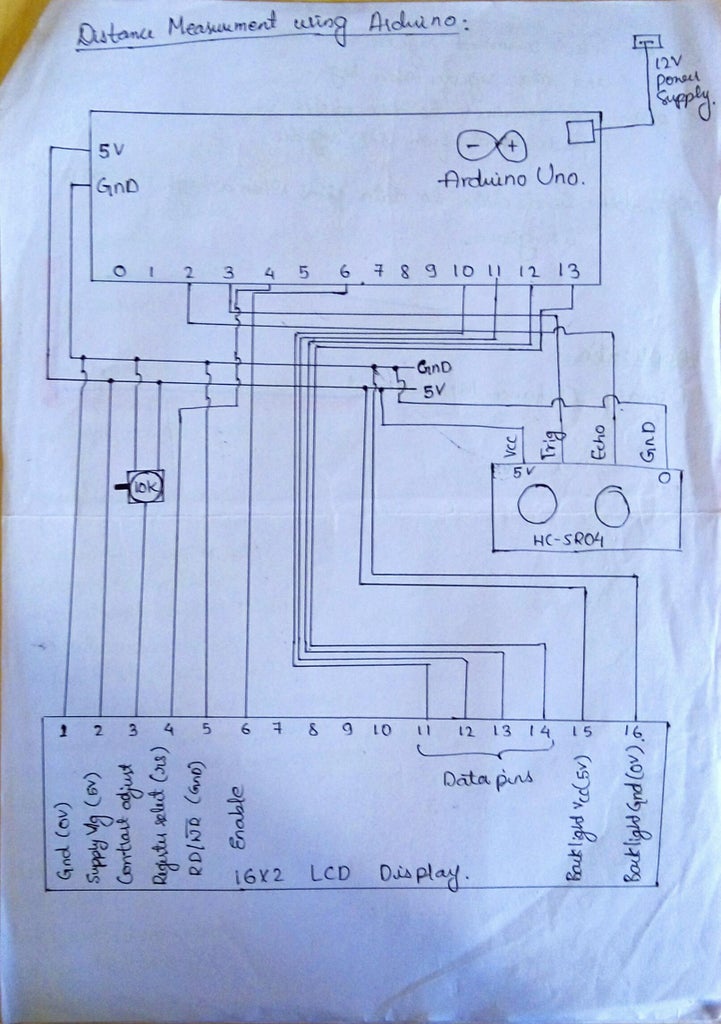 Distance Measurement using Arduino:
12V
power
supply.
5V
GND
- +
Arduino Uno.
0 1 2 3 4 5 6 7 8 9 10 11 12 13
GND
5V
Vcc
Trig
Echo
GND
5V
0
10k
HC-SR04
1 2 3 4 5 6 7 8 9 10 11 12 13 14 15 16
Gnd (0V)
Supply Vtg (5V)
Contrast adjust
Register select (rs)
RD/WR (GND)
Enable
Data pins
Backlight Vcc (5V)
Backlight Gnd (0V).
16X2 LCD Display.